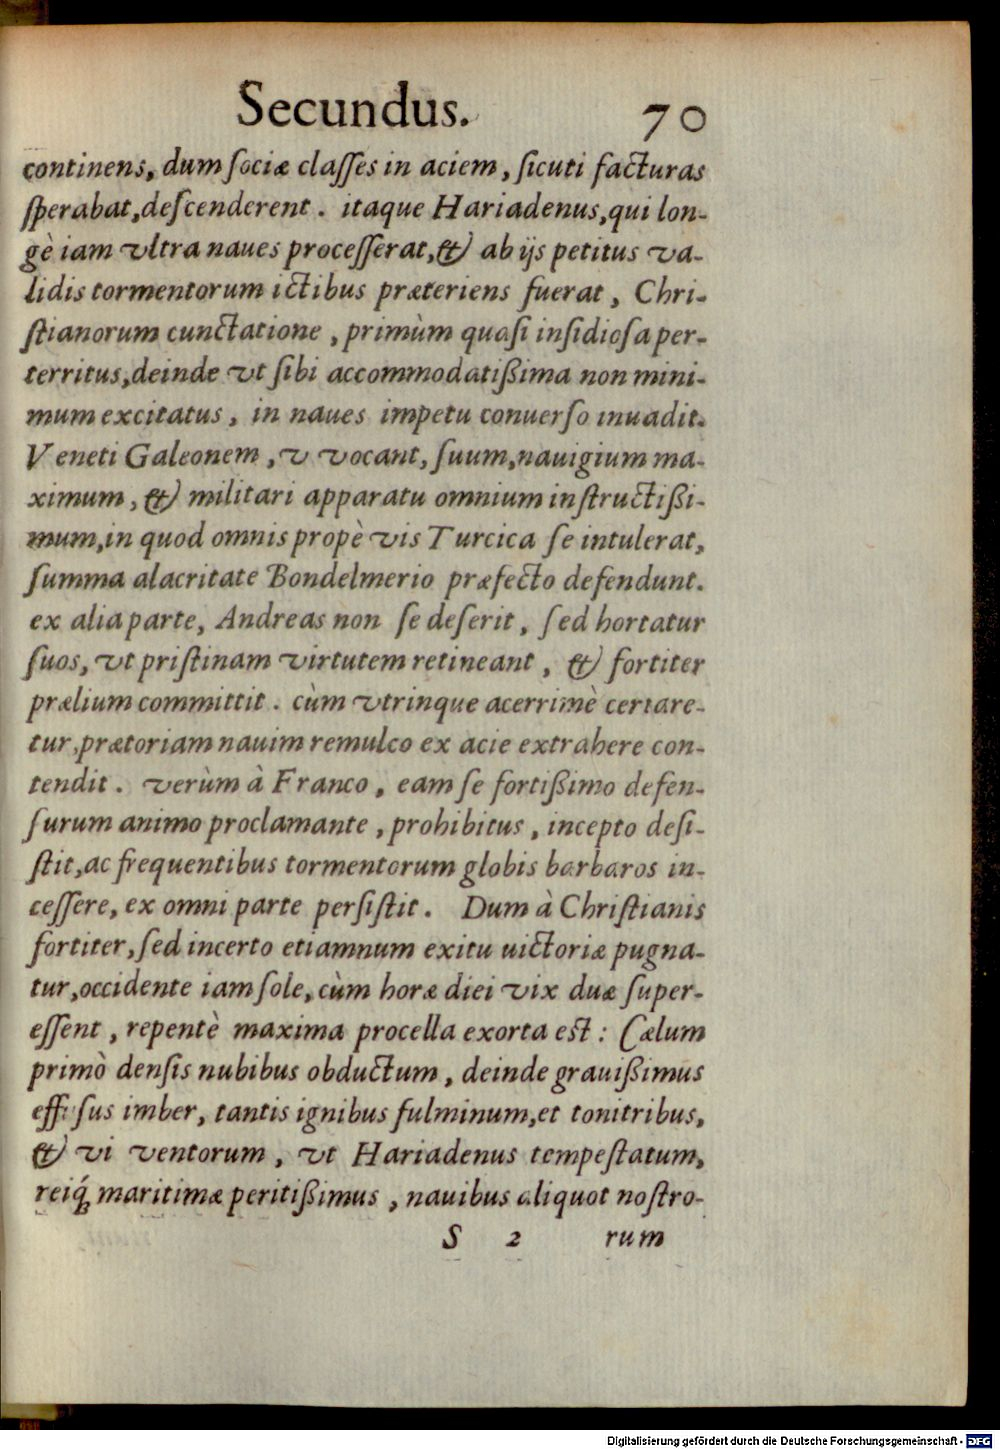 Secundus. 70
continens, dum sociæ classes in aciem, sicuti facturas
sperabat, descenderent. itaque Hariadenus, qui lon-
gè iam vltra naues processerat, & ab ijs petitus va-
lidis tormentorum ictibus præteriens fuerat, Chri-
stianorum cunctatione, primùm quasi insidiosa per-
territus, deinde vt sibi accommodatißima non mini-
mum excitatus, in naues impetu conuerso inuadit.
Veneti Galeonem, v vocant, suum, nauigium ma-
ximum, & militari apparatu omnium instructißi-
mum, in quod omnis propè vis Turcica se intulerat,
summa alacritate Bondelmerio præfecto defendunt.
ex alia parte, Andreas non se deserit, sed hortatur
suos, vt pristinam virtutem retineant, & fortiter
prælium committit. cùm vtrinque acerrimè certare-
tur, prætoriam nauim remulco ex acie extrahere con-
tendit. verùm à Franco, eam se fortißimo defen-
surum animo proclamante, prohibitus, incepto desi-
stit, ac frequentibus tormentorum globis barbaros in-
cessere, ex omni parte persistit. Dum à Christianis
fortiter, sed incerto etiamnum exitu uictoriæ pugna-
tur, occidente iam sole, cùm horæ diei vix duæ super-
essent, repentè maxima procella exorta est: Cælum
primò densis nubibus obductum, deinde grauißimus
effusus imber, tantis ignibus fulminum, et tonitribus,
& vi ventorum, vt Hariadenus tempestatum,
reiq́; maritimæ peritißimus, nauibus aliquot nostro-
S 2 rum
Digitalisierung gefördert durch die Deutsche Forschungsgemeinschaft - DFG